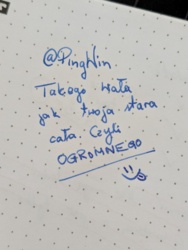 @PingWin
Takiego wała
jak twoja stara
cała. Czyli
OGROMNEGO